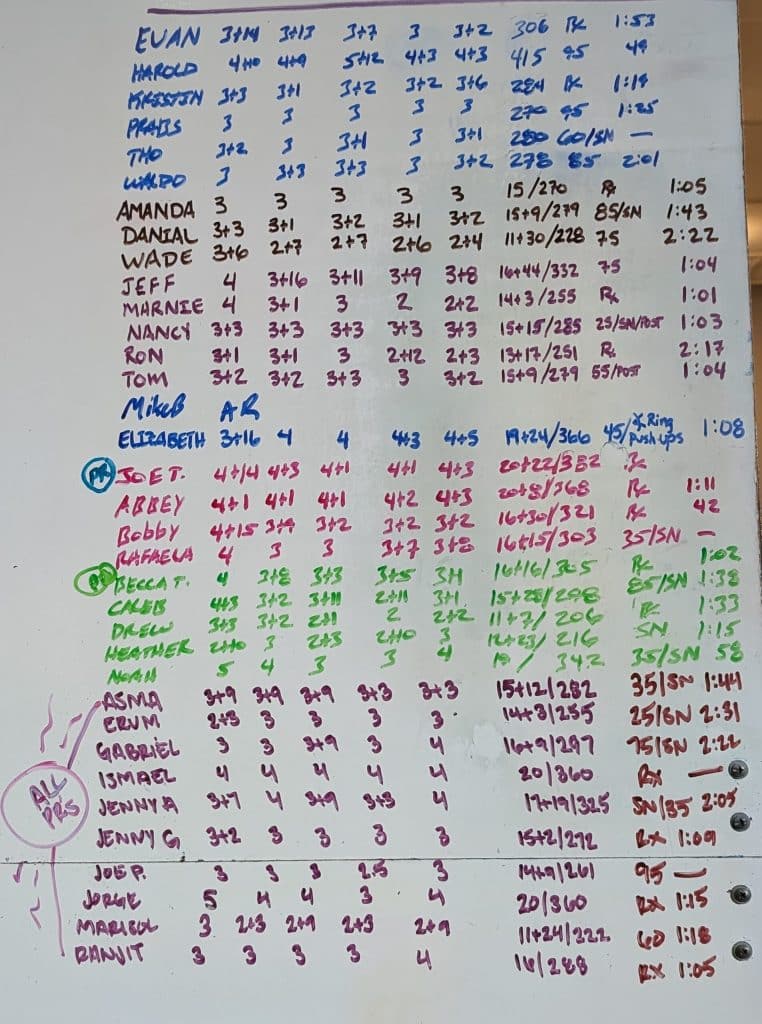 EVAN 3+14 3+13 3+7 3 3+2 306 Rx 1:53
HAROLD 4+10 4+9 5+12 4+3 4+3 415 95 49
KRISTIN 3+3 3+1 3+2 3+2 3+6 284 Rx 1:19
3 3 3 3 3 270 95 1:25
THO 3+2 3 3+1 3 3+1 280 60/SN —
WALDO 3 3+3 3+3 3 3+2 278 85 2:01
AMANDA 3 3 3 3 3 15/270 Rx 1:05
DANIAL 3+3 3+1 3+2 3+1 3+2 15+9/279 85/SN 1:43
WADE 3+6 2+7 2+7 2+6 2+4 11+30/228 75 2:22
JEFF 4 3+16 3+11 3+9 3+8 16+44/332 75 1:04
MARNIE 4 3+1 3 2 2+2 14+3/255 Rx 1:01
NANCY 3+3 3+3 3+3 3+3 3+3 15+15/285 25/SN/POST 1:03
RON 3+1 3+1 3 2+12 2+3 13+17/251 Rx 2:17
TOM 3+2 3+2 3+3 3 3+2 15+9/279 55/POST 1:04
MikeB AR
ELIZABETH 3+16 4 4 4+3 4+5 19+24/366 45/ Ring Push ups 1:08
PR JOE T. 4+14 4+3 4+1 4+1 4+3 20+22/382 Rx
ABBEY 4+1 4+1 4+1 4+2 4+3 20+8/368 Rx 1:11
Bobby 4+15 3+9 3+2 3+2 3+2 16+30/321 Rx 42
RAFAELA 4 3 3 3+7 3+8 16+15/303 35/SN —
PR BECCA T. 4 3+8 3+3 3+5 3+1 16+16/305 Rx 1:02
CALEB 4+3 3+2 3+11 2+11 3+1 15+28/298 85/SN 1:38
DREW 3+3 3+2 2+11 2 2+2 11+7/206 Rx 1:33
HEATHER 2+10 3 2+3 2+10 3 12+23/216 SN 1:15
NOAH 5 4 3 3 4 19/342 35/SN 58
ASMA 3+9 3+9 3+9 3+3 3+3 15+12/282 35/SN 1:44
ERUM 2+3 3 3 3 3 14+3/255 25/SN 2:31
GABRIEL 3 3 3+9 3 4 16+9/297 75/SN 2:22
ISMAEL 4 4 4 4 4 20/360 Rx —
ALL PRS
JENNY A 3+7 4 3+9 3+3 4 17+19/325 SN/35 2:05
JENNY G 3+2 3 3 3 3 15+2/272 RX 1:09
JOE P. 3 3 3 2.5 3 14+9/261 95 —
JORGE 5 4 4 3 4 20/360 RX 1:15
MARISOL 3 2+3 2+9 2+3 2+9 11+24/222 60 1:18
RANJIT 3 3 3 3 4 16/288 RX 1:05